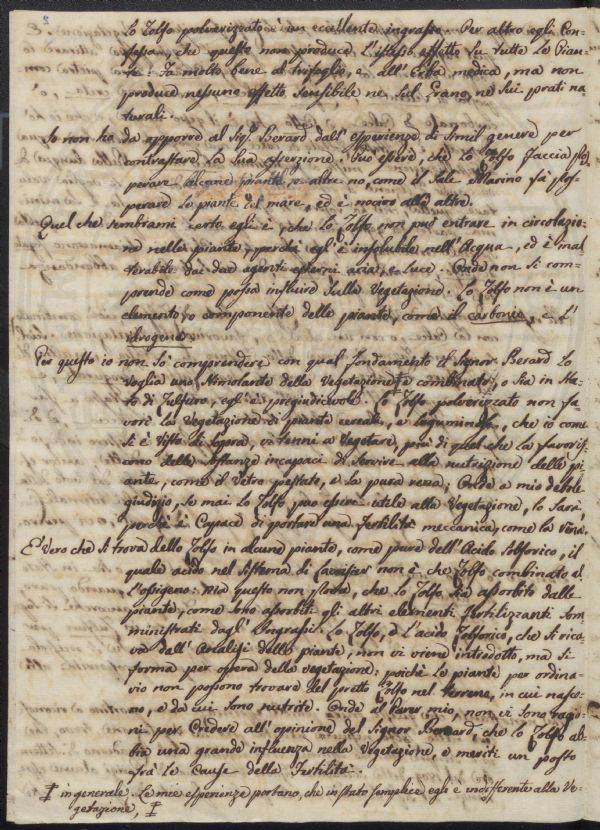 lo Zolfo polverizzato è un eccellente ingrasso. Per altro egli Con-
fessa, che questo non produce l'istesso effetto su tutte le Pian-
te: Fa molto bene al trifoglio, e all'Erba medica, ma non
produce nessuno effetto sensibile ne sul Grano, ne sui prati na-
turali.
Io non ho da opporre al Sigr. Berard dall'esperienze di simil genere per
contrastare la sua asserzione. Può essere, che lo Zolfo faccia pro-
sperare alcune piante, e altre no, come il Sale Marino fa pros-
perare le piante del mare, ed è nocivo alle altre.
Quel che sembrami certo egli è, che lo Zolfo non può entrare in circolazio-
ne nelle piante, perchè egl'è insolubile nell'Acqua, ed è inal-
terabile dai due agenti esterni aria, e luce. Onde non si com-
prende come possa influire sulla vegetazione. Lo Zolfo non è un
elemento, o componente delle piante, come il carbonio, e l'
idrogene.
Per questo io non sò comprendere con qual fondamento il Signor Berard lo
voglia uno stimolante della Vegetazione ‡ combinato, o sia in sta-
to di Zulfuro, egl'è pregiudicevole. Lo Zolfo polverizzato non fa-
vorì la vegetazione di piante cereali, e leguminose, che io come
si è visto di sopra, vi tenni a vegetare, più di quel che la favoris-
cono delle sostanze incapaci di servire alla nutrizione delle pi-
ante, come il Vetro pestato, e la pura rena; Onde a mio debole
giudizio, se mai lo Zolfo può essere utile alla Vegetazione, lo sarà,
perchè è Capace di portare una fertilità meccanica, come la rena.
E' vero che si trova dello Zolfo in alcune piante, come pure dell'Acido Solforico, il
quale acido nel Sistema di Lavoisier non è che Zolfo combinato al
l'ossigeno: Ma questo non prova, che lo Zolfo sia assorbito dalle
piante, come sono assorbiti gli altri elementi fertilizzanti som-
ministrati dagl'Ingrassi. Lo Zolfo, o l'acido Zolforico, che si rica-
va dall'Analisi delle piante, non vi viene introdotto, ma si
forma per opera della vegetazione: poichè le piante per ordina-
rio non possono trovare del pretto Zolfo nel terreno, in cui nasco-
no, e da cui sono nutrite. Onde al Parer mio, non vi sono ragio-
ni per Credere all'opinione del Signor Berard, che lo Zolfo ab-
bia una grande influenza nella Vegetazione, e meriti un posto
frà le Cause della fertilità.
‡ in generale. Le mie esperienze portano, che in stato semplice egli è indifferente alla Ve-
getazione, ‡